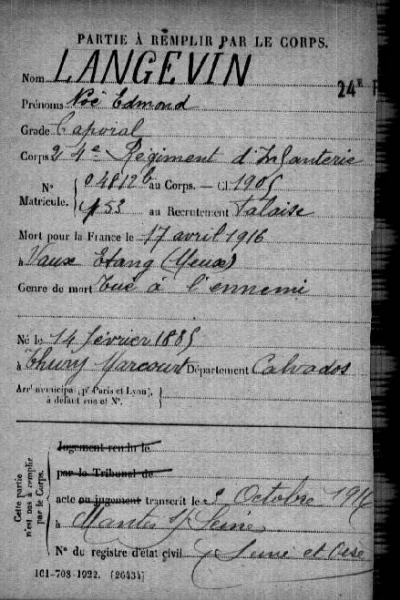 PARTIE À REMPLIR PAR LE CORPS.
Nom LANGEVIN
24E
Prénoms Noë Edmond
Grade Caporal
Corps 24e Régiment d'Infanterie
N° Matricule. { 04812b au Corps. — Cl 1905
453 au Recrutement Falaise
Mort pour la France le 17 avril 1916
à Vaux Etang (Meuse)
Genre de mort Tué à l'ennemi
Né le 14 février 1885
à Thury Harcourt Département Calvados
Arrt municipal (pr Paris et Lyon), à défaut rue et N°. {
Cette partie n'est pas à remplir par le Corps.
Jugement rendu le
par le Tribunal de
acte ou jugement transcrit le 3 Octobre 1916
à Mantes s/ Seine
N° du registre d'état civil Seine et Oise
101-708-1922. [26434]